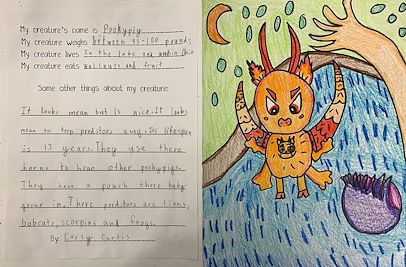 My creature's name is Porkypig
My creature weighs between 95-100 pounds
My creature lives In the lake
My creature eats wallnuts and fruit
Some other things about my creature:
It looks mean but is nice. It looks
mean to keep preditors away. Its lifespan
is 13 years. They use there
horns to hear other porkypigs.
They have a pouch there baby
grows in. There preditors are lions,
bobcats, scorpins and frogs.
By: Carly Curtis